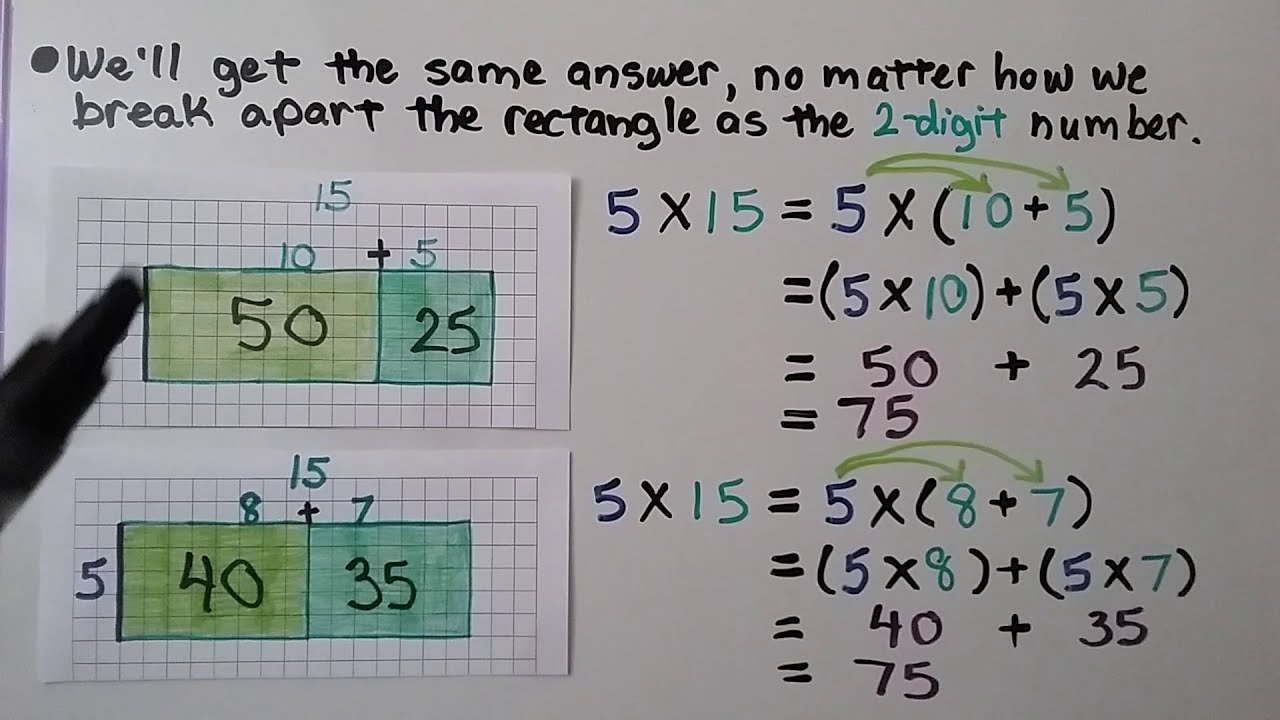 ●We'll get the same answer, no matter how we
break apart the rectangle as the 2-digit number.
15
10 + 5
50 25
5 x 15 = 5 x (10 + 5)
= (5 x 10) + (5 x 5)
= 50 + 25
= 75
15
8 + 7
5 40 35
5 x 15 = 5 x (8 + 7)
= (5 x 8) + (5 x 7)
= 40 + 35
= 75